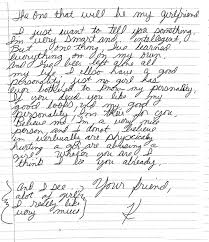 The one that will be my girlfriend
I just want to tell you something.
I'm very smart and intelligent.
But one thing I've learned
everything on my own.
And I had been left alone all
my life. I also have a good
personality, just no girl has
ever bothered to know my personality.
If you think you like my
good looks and my good
personality than this for you.
Believe me I'm a very nice
person and I do not believe
in verbually are physically
hurting a girl are abusing a
girl. Whoever you are I
think I do you already.
And I see
alot of
I really like
very much
Your friend,